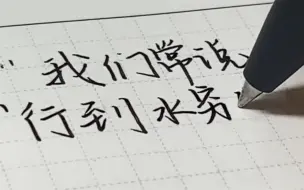 "我们常说
"行到水穷